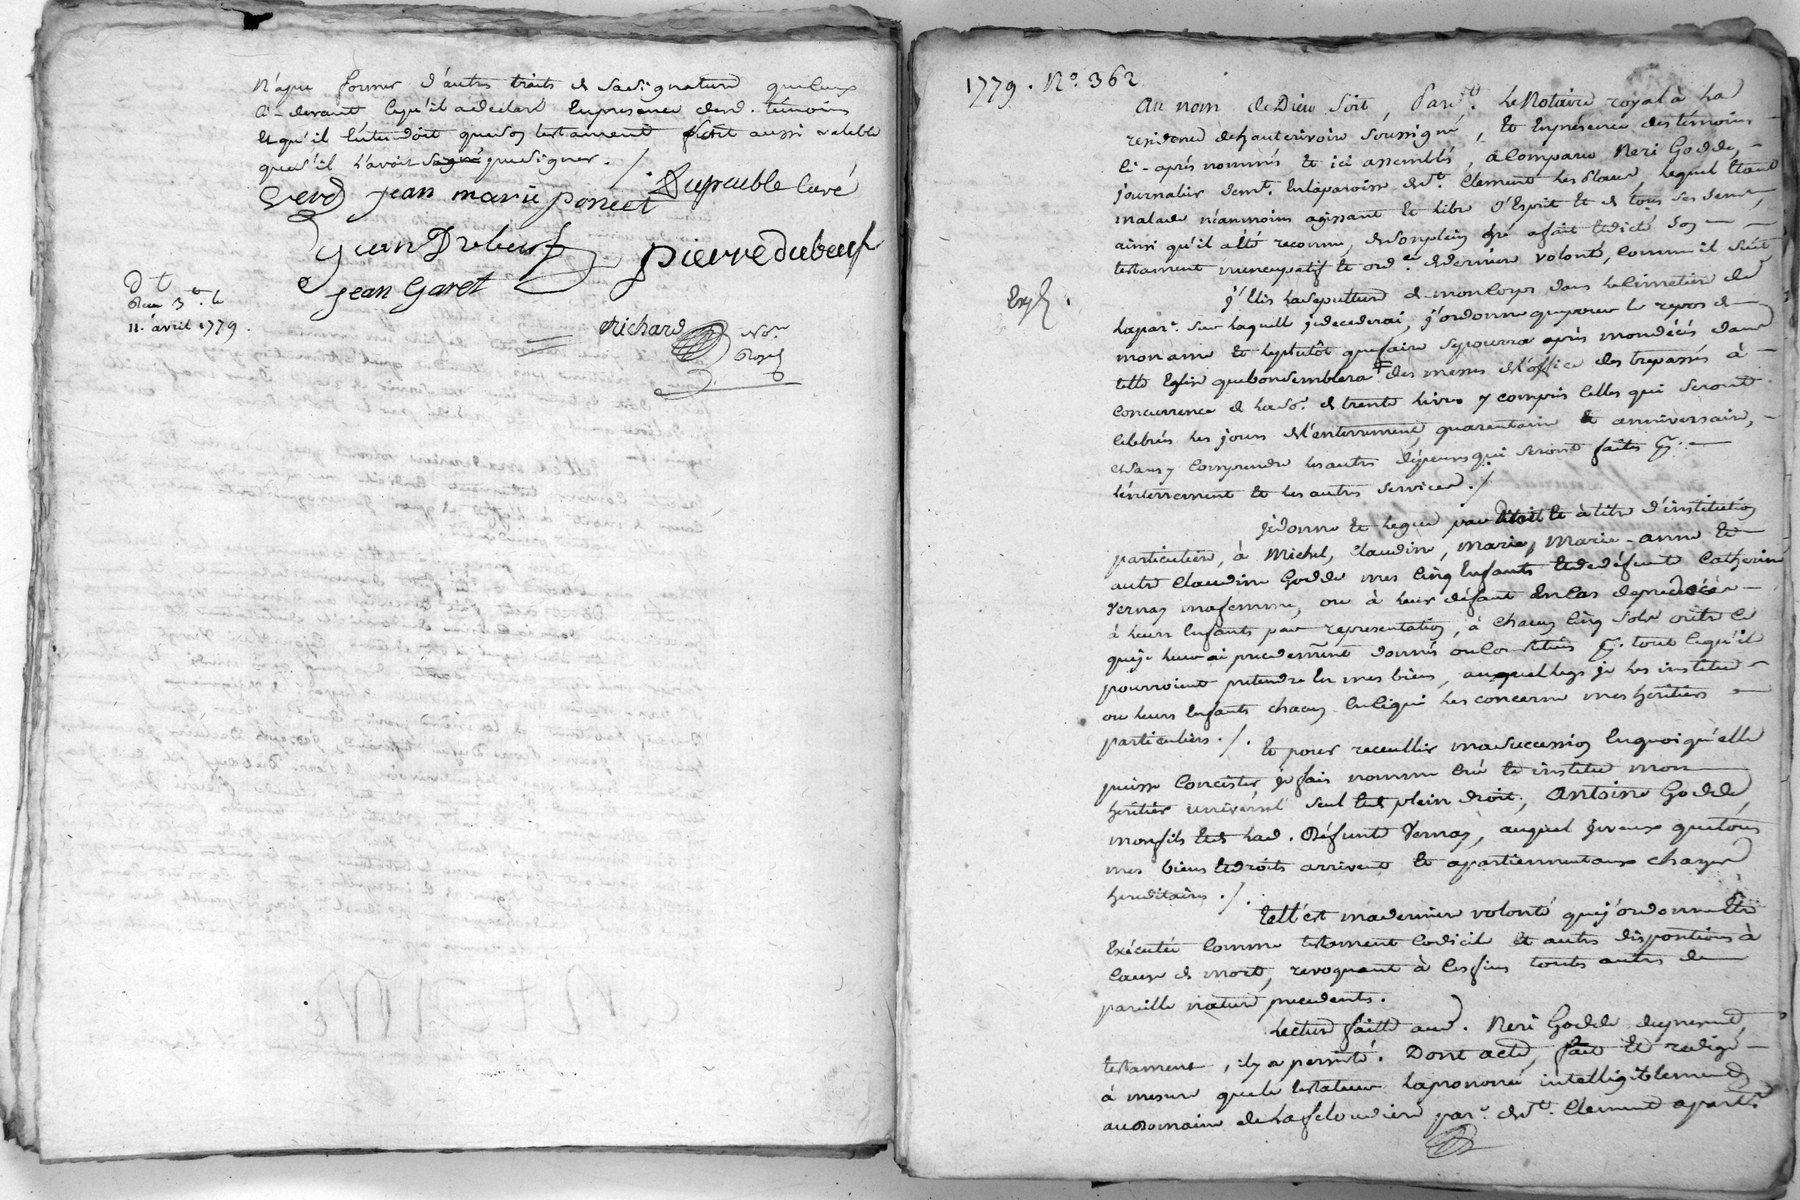 n'a pu former d'autres traits de sa signature que ceux
ci-devant ce qu'il a declaré en presence desd. temoins
et qu'il entendoit que son testament fut aussi valable
que s'il l'avoit signé que signer. /.
Verd jean marie poncet Dupeuble curé
jean Dubeuf pierre dubeuf
jean Garet
D t
Reçu 3# le
11. avril 1779.
Richard No.re
Royal
1779. N.o 362
Au nom de Dieu soit, Pard.t le Notaire royal à la
residence de hauterivoire soussigné, et en présence des témoins
ci-après nommés et ici assemblés, a comparu Neri Godde,
journalier dem.t en la paroisse de S.t Clement les Places, lequel étant
malade néanmoins agissant et libre d'Esprit et de tous ses sens,
ainsi qu'il a été reconnu, de son plein gré a fait et dicté son
testament nuncupatif et ord.e de derniere volonté, comme il suit
Exp.
j'Elis la sepulture de mon corps dans le cimetiere de
la par.e sur laquelle je decederai, j'ordonne que pour le repos de
mon ame et le plutôt que faire se pourra après mon décès dans
telle Eglise que bon semblera des messes de l'office des trepassés à
concurrence de la so.e de trente livres y compris celles qui seront
celebrées les jours de l'enterrement, quarantaine et anniversaire,
sans y comprendre les autres dépenses qui seront faites p.r
l'enterrement et les autres services. /.
je donne et legue par droit et à titre d'institution
particuliere, à Michel, Claudine, Marie, Marie-anne et
autre Claudine Godde mes cinq Enfants et de défunte Catherine
Vernay ma femme, ou à leur défaut en cas de predécès
à leurs Enfants par representation, à chacun cinq sols outre ce
que je leur ai precedemment donnés ou constitués p.r tout ce qu'ils
pourroient pretendre en mes biens, auquel legs je les institue
ou leurs Enfants chacun en ce qui les concerne mes heritiers
particuliers. /. Et pour recueillir ma succession en quoi qu'elle
puisse concister, je fais nomme créé et institue mon
heritier universel seul et de plein droit, Antoine Godde,
mon fils et de lad. Défunte Vernay, auquel je veux que tous
mes biens et droits arrivent et apartiennent aux charges
hereditaires. /.
telle est ma derniere volonté que j'ordonne être
exécutée comme testament codicile et autres dispositions à
cause de mort, revoquant à ces fins toutes autres de
pareille nature precedentes.
Lecture faitte aud. Neri Godde du present
testament, il y a persisté. Dont acte, fait et redigé
à mesure que le testateur l'a prononcé intelligiblement
au Domaine de par.e de S.t Clement apart.t